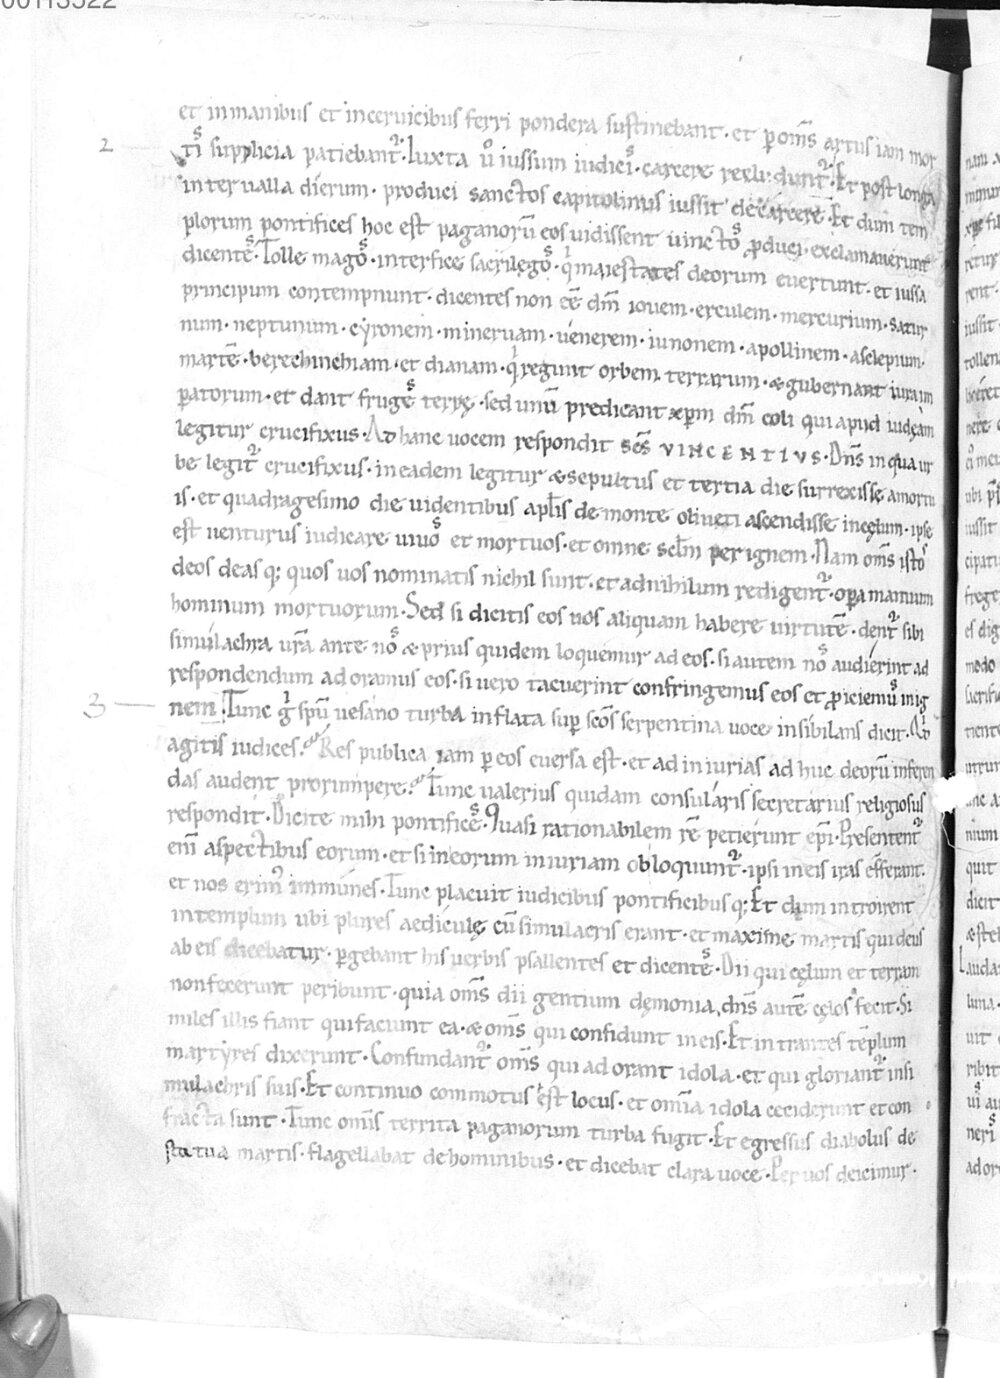 00113522
et in manibus et in ceruicibus ferri pondera sustinebant · et ꝑ om̄s artus iam mor
2
tis supplicia patiebant᷑ · Iuxta ů iussum iudicis · carcere recludunt᷑ · Et post longa
interualla dierum · produci sanctos capitolinus iussit de carcere · Et dum tem
plorum pontifices hoc est paganorū eos uidissent uinctos ꝓduci · exclamauerunt
dicentes · Tolle magos · interfice sacrilegos · qͥ maiestates deorum euertunt · et iussa
principum contempnunt · dicentes non eē dm̄ iouem · erculem · mercurium · satur
num · neptunum · cyronem · mineruam · uenerem · iunonem · apollinem · asclepium ·
martē · berechinchiam · et dianam · qͥ regunt orbem terrarum · & gubernant iura im
ꝑatorum · et dant fruges terrę · sed unū predicant xp̄m dm̄ coli qui apud iudeam
legitur crucifixus · Ad hanc uocem respondit scs̄ VINCENTIVS · Dn̄s in qua ur
be legit᷑ crucifixus · in eadem legitur & sepultus et tertia die surrexisse a mortu
is · et quadragesimo die uidentibus apl̄is de monte oliueti ascendisse in cęlum · ipse
est uenturus iudicare uiuos et mortuos · et omne sclm̄ per ignem · Nam om̄s istos
deos deasq; quos uos nominatis nichil sunt · et ad nihilum redigent᷑ · opa manuum
hominum mortuorum · Sed si dicitis eos nos aliquam habere uirtutē · dent᷑ sibi
simulachra ur̄a ante nos & prius quidem loquemur ad eos · si autem nos audierint ad
respondendum adoramus eos · si uero tacuerint confringemus eos et ꝓiciemus in ig
3
nem · Tunc gͥ spū uesano turba inflata sup̱ scōs serpentina uoce insibilans dicit ·
agitis iudices · Res publica iam ꝑ eos euersa est · et ad iniurias ad huc deorū inferen
das audent prorumpere · Tunc ualerius quidam consularis secretarius religiosus
respondit · Dicite mihi pontifices · Quasi rationabilem rē petierunt ep̄i · Presentent᷑
eni̅ aspectibus eorum · et si in eorum iniuriam obloquunt᷑ · ipsi in eis iras efferant ·
et nos erim᷒ immunes · Tunc placuit iudicibus pontificibusq; Et dum introirent
in templum ubi plures aediculę cū simulacris erant · et maxime martis qui deus
ab eis dicebatur · ꝑgebant his uerbis psallentes et dicentes · Dii qui cęlum et terram
non fecerunt peribunt · quia om̄s dii gentium dęmonia, dn̄s autē cęlos fecit · Si
miles illis fiant qui faciunt ea · & om̄s qui confidunt in eis · Et intrantes tēplum
martyres dixerunt · Confundant᷑ om̄s qui adorant idola · et qui gloriant᷑ in si
mulachris suis · Et continuo commotus est locus · et omīa idola ceciderunt et con
fracta sunt · Tunc omīs territa paganorum turba fugit · Et egressus diabolus de
statua martis · flagellabat de hominibus · et dicebat clara uoce · Per uos deicimur ·